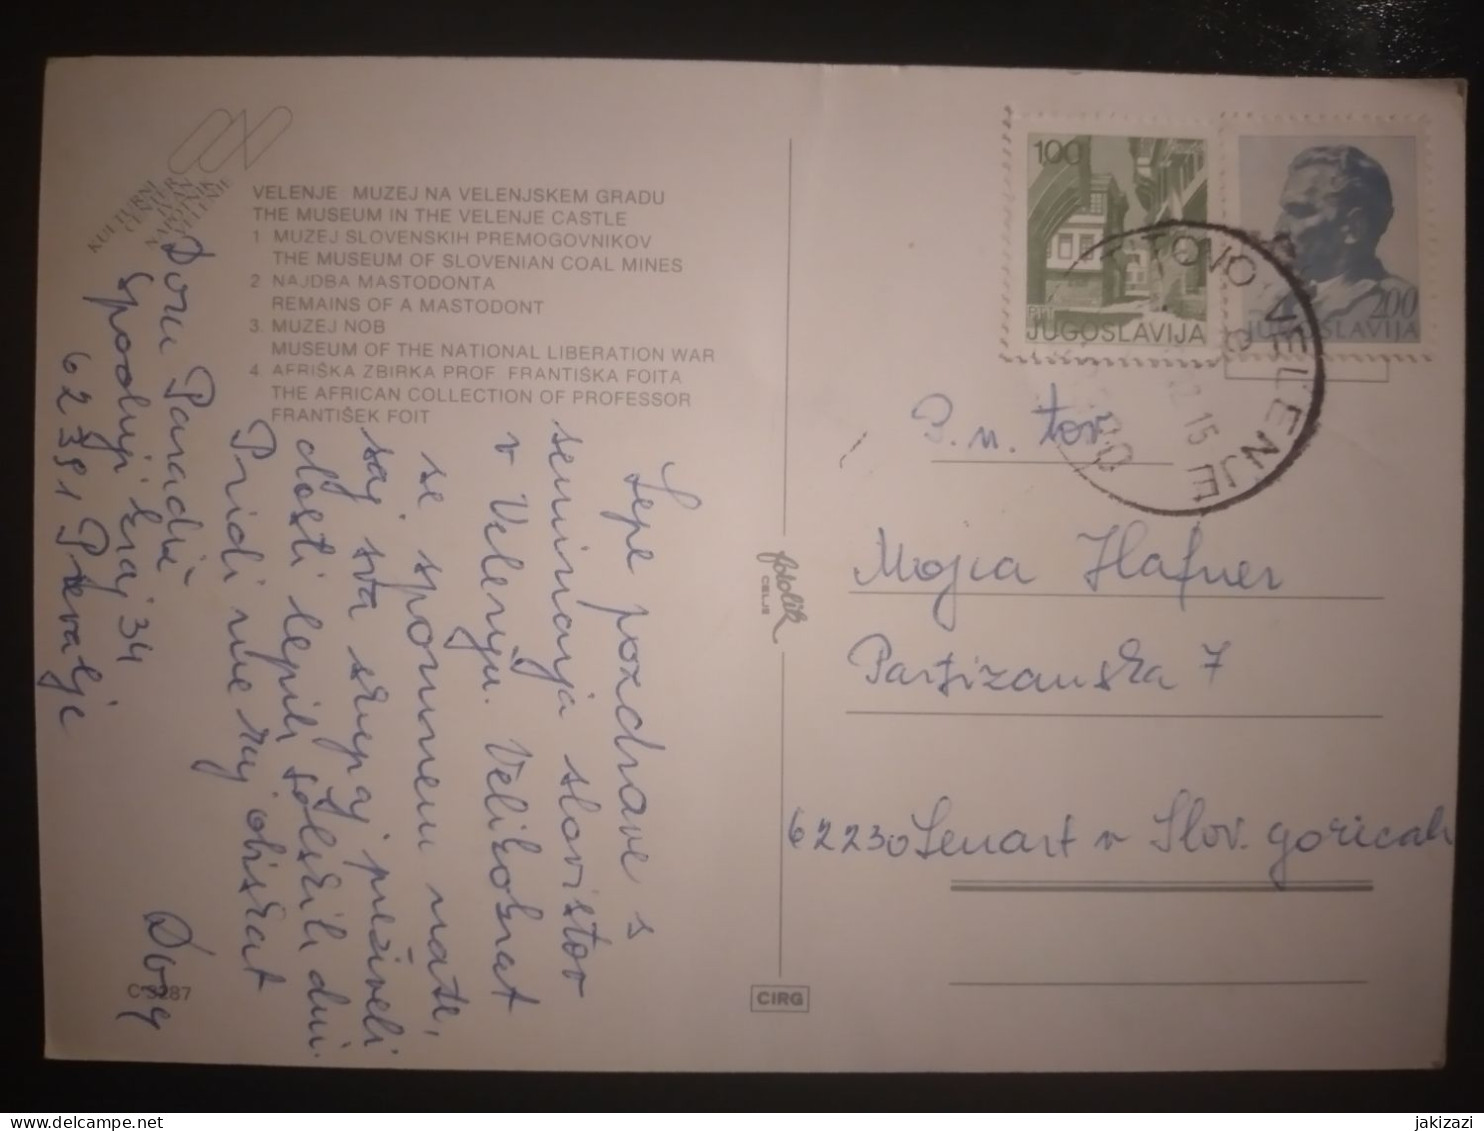 KULTURNI
CENTER
VELENJE
VELENJE MUZEJ NA VELENJSKEM GRADU
THE MUSEUM IN THE VELENJE CASTLE
1 MUZEJ SLOVENSKIH PREMOGOVNIKOV
THE MUSEUM OF SLOVENIAN COAL MINES
2 NAJDBA MASTODONTA
REMAINS OF A MASTODONT
3. MUZEJ NOB
MUSEUM OF THE NATIONAL LIBERATION WAR
4 AFRIŠKA ZBIRKA PROF FRANTIŠKA FOITA
THE AFRICAN COLLECTION OF PROFESSOR
FRANTIŠEK FOIT
Lepe pozdrave s
seminarja slavistov
v Velenju. Velikokrat
se spomnem nate,
saj sva skupaj preživeli
dosti lepih šolskih dni.
Pridi me kaj obiskat
Spodnji kraj 34
62391 Prevalje
C 3287
fotolik
CELJE
CIRG
100
PTT
JUGOSLAVIJA
200
JUGOSLAVIJA
TITOVO VELENJE
15
P. n. tov
Mojca Hafner
Partizanska 7
62230 Lenart v Slov. goricah
jakizazi